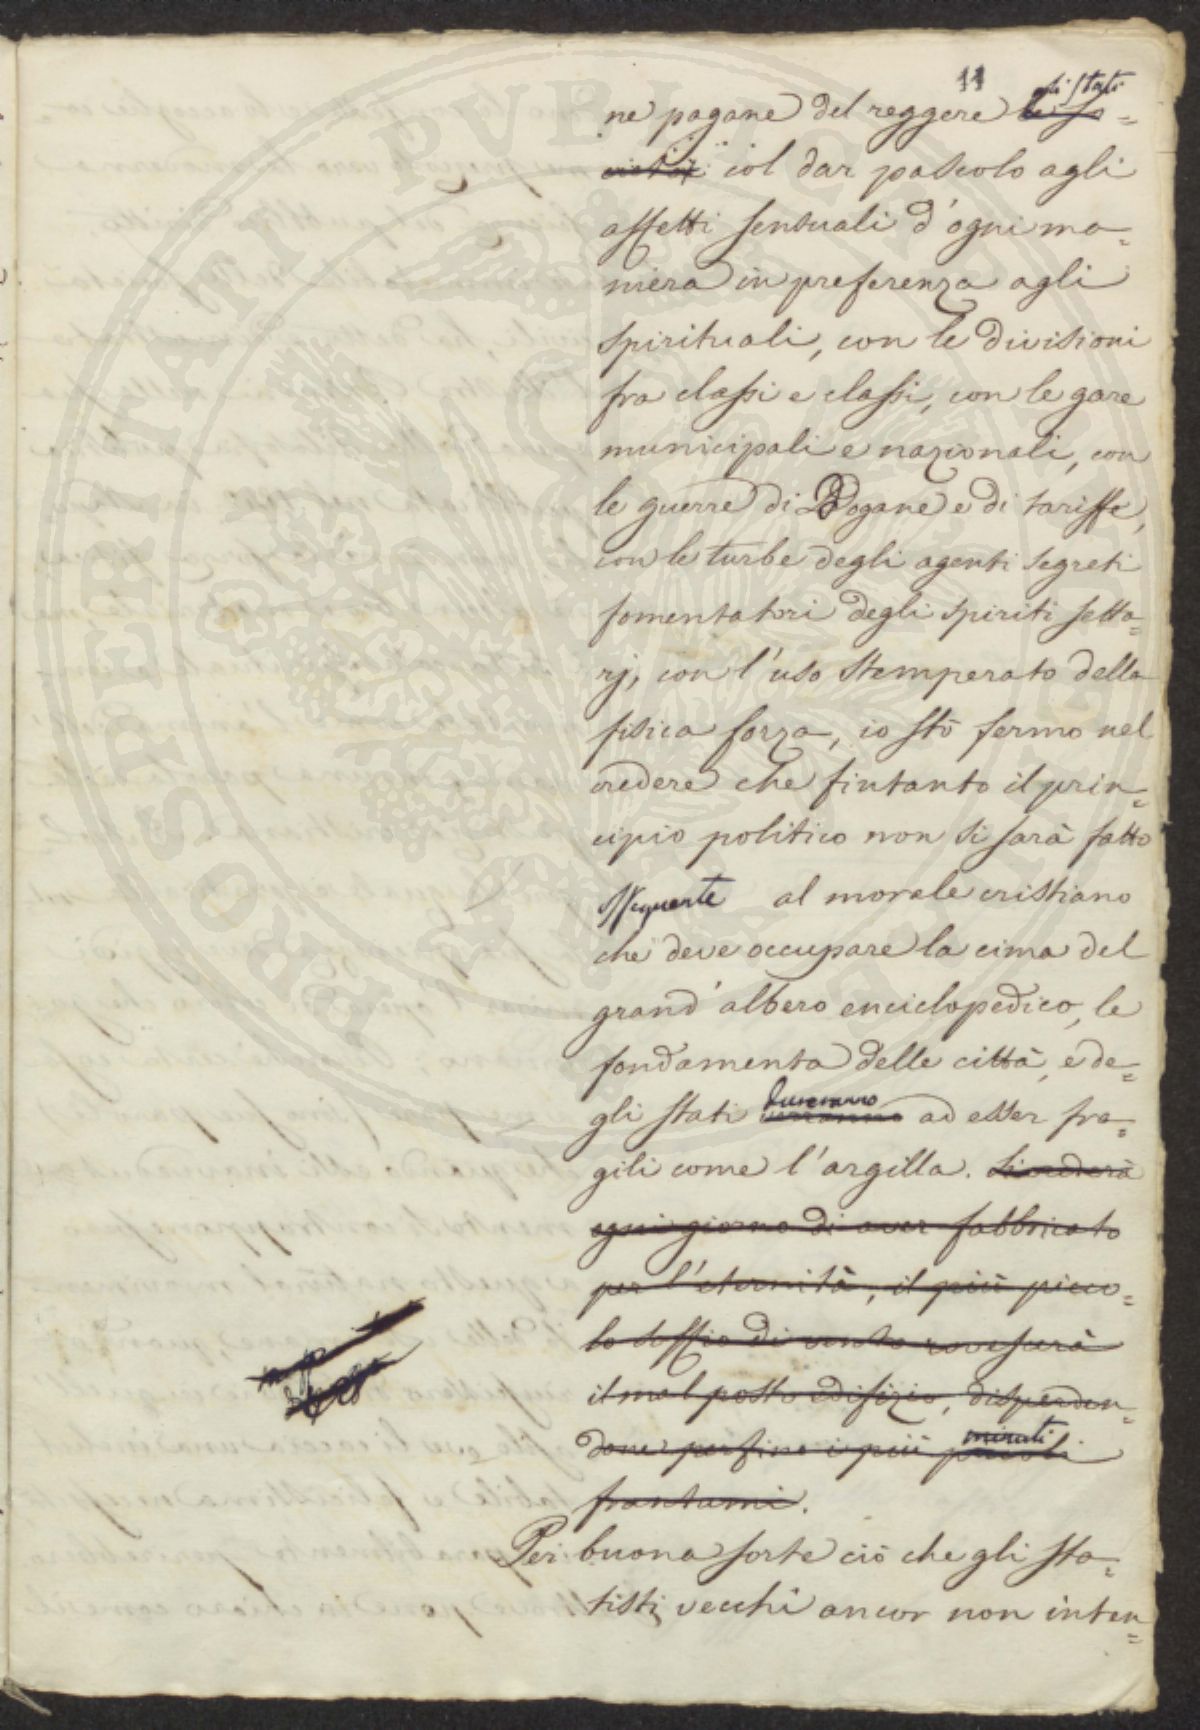 11
gli Stati
ne pagane del reggere le so=
cietà; col dar pascolo agli
affetti sensuali d'ogni ma=
niera in preferenza agli
spirituali, con le divisioni
fra classi e classi, con le gare
municipali e nazionali, con
le guerre di Dogane e di tariffe,
con le turbe degli agenti segreti
fomentatori degli spiriti setta=
rj, con l'uso stemperato della
fisica forza, io stò fermo nel
credere che fintanto il prin=
cipio politico non si sarà fatto
seguente al morale cristiano
che deve occupare la cima del
grand'albero enciclopedico, le
fondamenta delle città, e de=
dureranno
gli stati ad esser fra=
gili come l'argilla. Si crederà
ogni giorno di aver fabbricato
per l'eternità, il più picco=
lo soffio di vento rovescerà
il mal posto edifizio, disperden=
minuti
done perfino i più piccoli
frantumi.
Per buona sorte ciò che gli sta=
tisti vecchi ancor non inten=
PROSPERITATI PVBLICAE